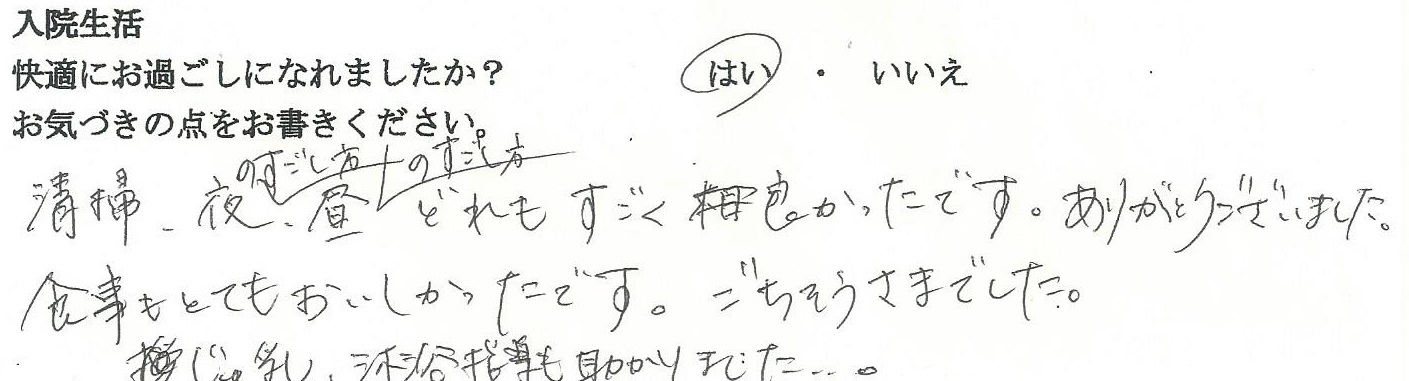 入院生活
快適にお過ごしになれましたか？ はい ・ いいえ
お気づきの点をお書きください。
清掃、夜のすごし方、昼のすごし方 どれもすごく良かったです。ありがとうございました。
食事もとてもおいしかったです。ごちそうさまでした。
沐浴指導も助かりました…。